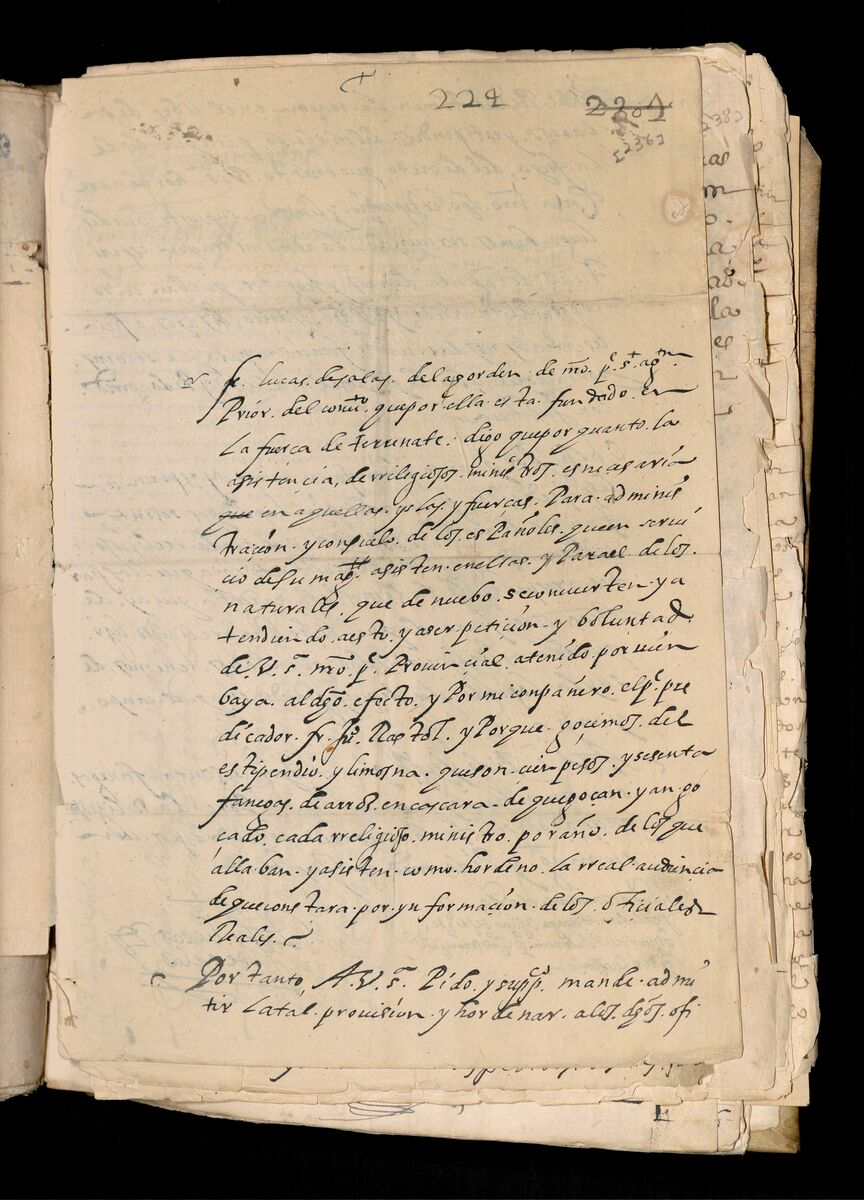 224
2201
2367
fr. lucas. de salas. del a gorden. de nro. pe. st. agn.
Prior. del convto. que por ella esta. fundado. en
La fuerca de terrenate. digo que por quanto. la
asistencia, de rreligiosos. ministros. es nicesaria
que en aquellas. yslas. y fuercas. Para. adminis
tracion. y consuelo. de los. es Pañoles. que en servi
cio de su magd. asisten. en ellas. y Para el. de los.
naturales. que de nuebo. se convierten. y a
tendiendo. a esto. y a ser peticion. y boluntad.
de. V. sa. nro. pe. Provincial. a tenido. por vien
baya. al dgo. efecto. y Por mi conpañero. el pe. pre
dicador. fr. Ju. Rastol. y Porque. gocemos. del
estipendio. y limosna. que son. cien pesos. y sesenta
fanegas. de arros. en cascara. de que goçan. y an go
cado. cada rreligioso. ministro. por año. de los que
alla. ban. y asisten. como. hordeno. la rreal. audiencia
de que constara. por. yn formacion. de los. oficiales
Reales.
Por tanto. A. V. sa. Pido. y suppco. mande. admi
tir la tal. provision. y hordenar. a los. dgos. ofi